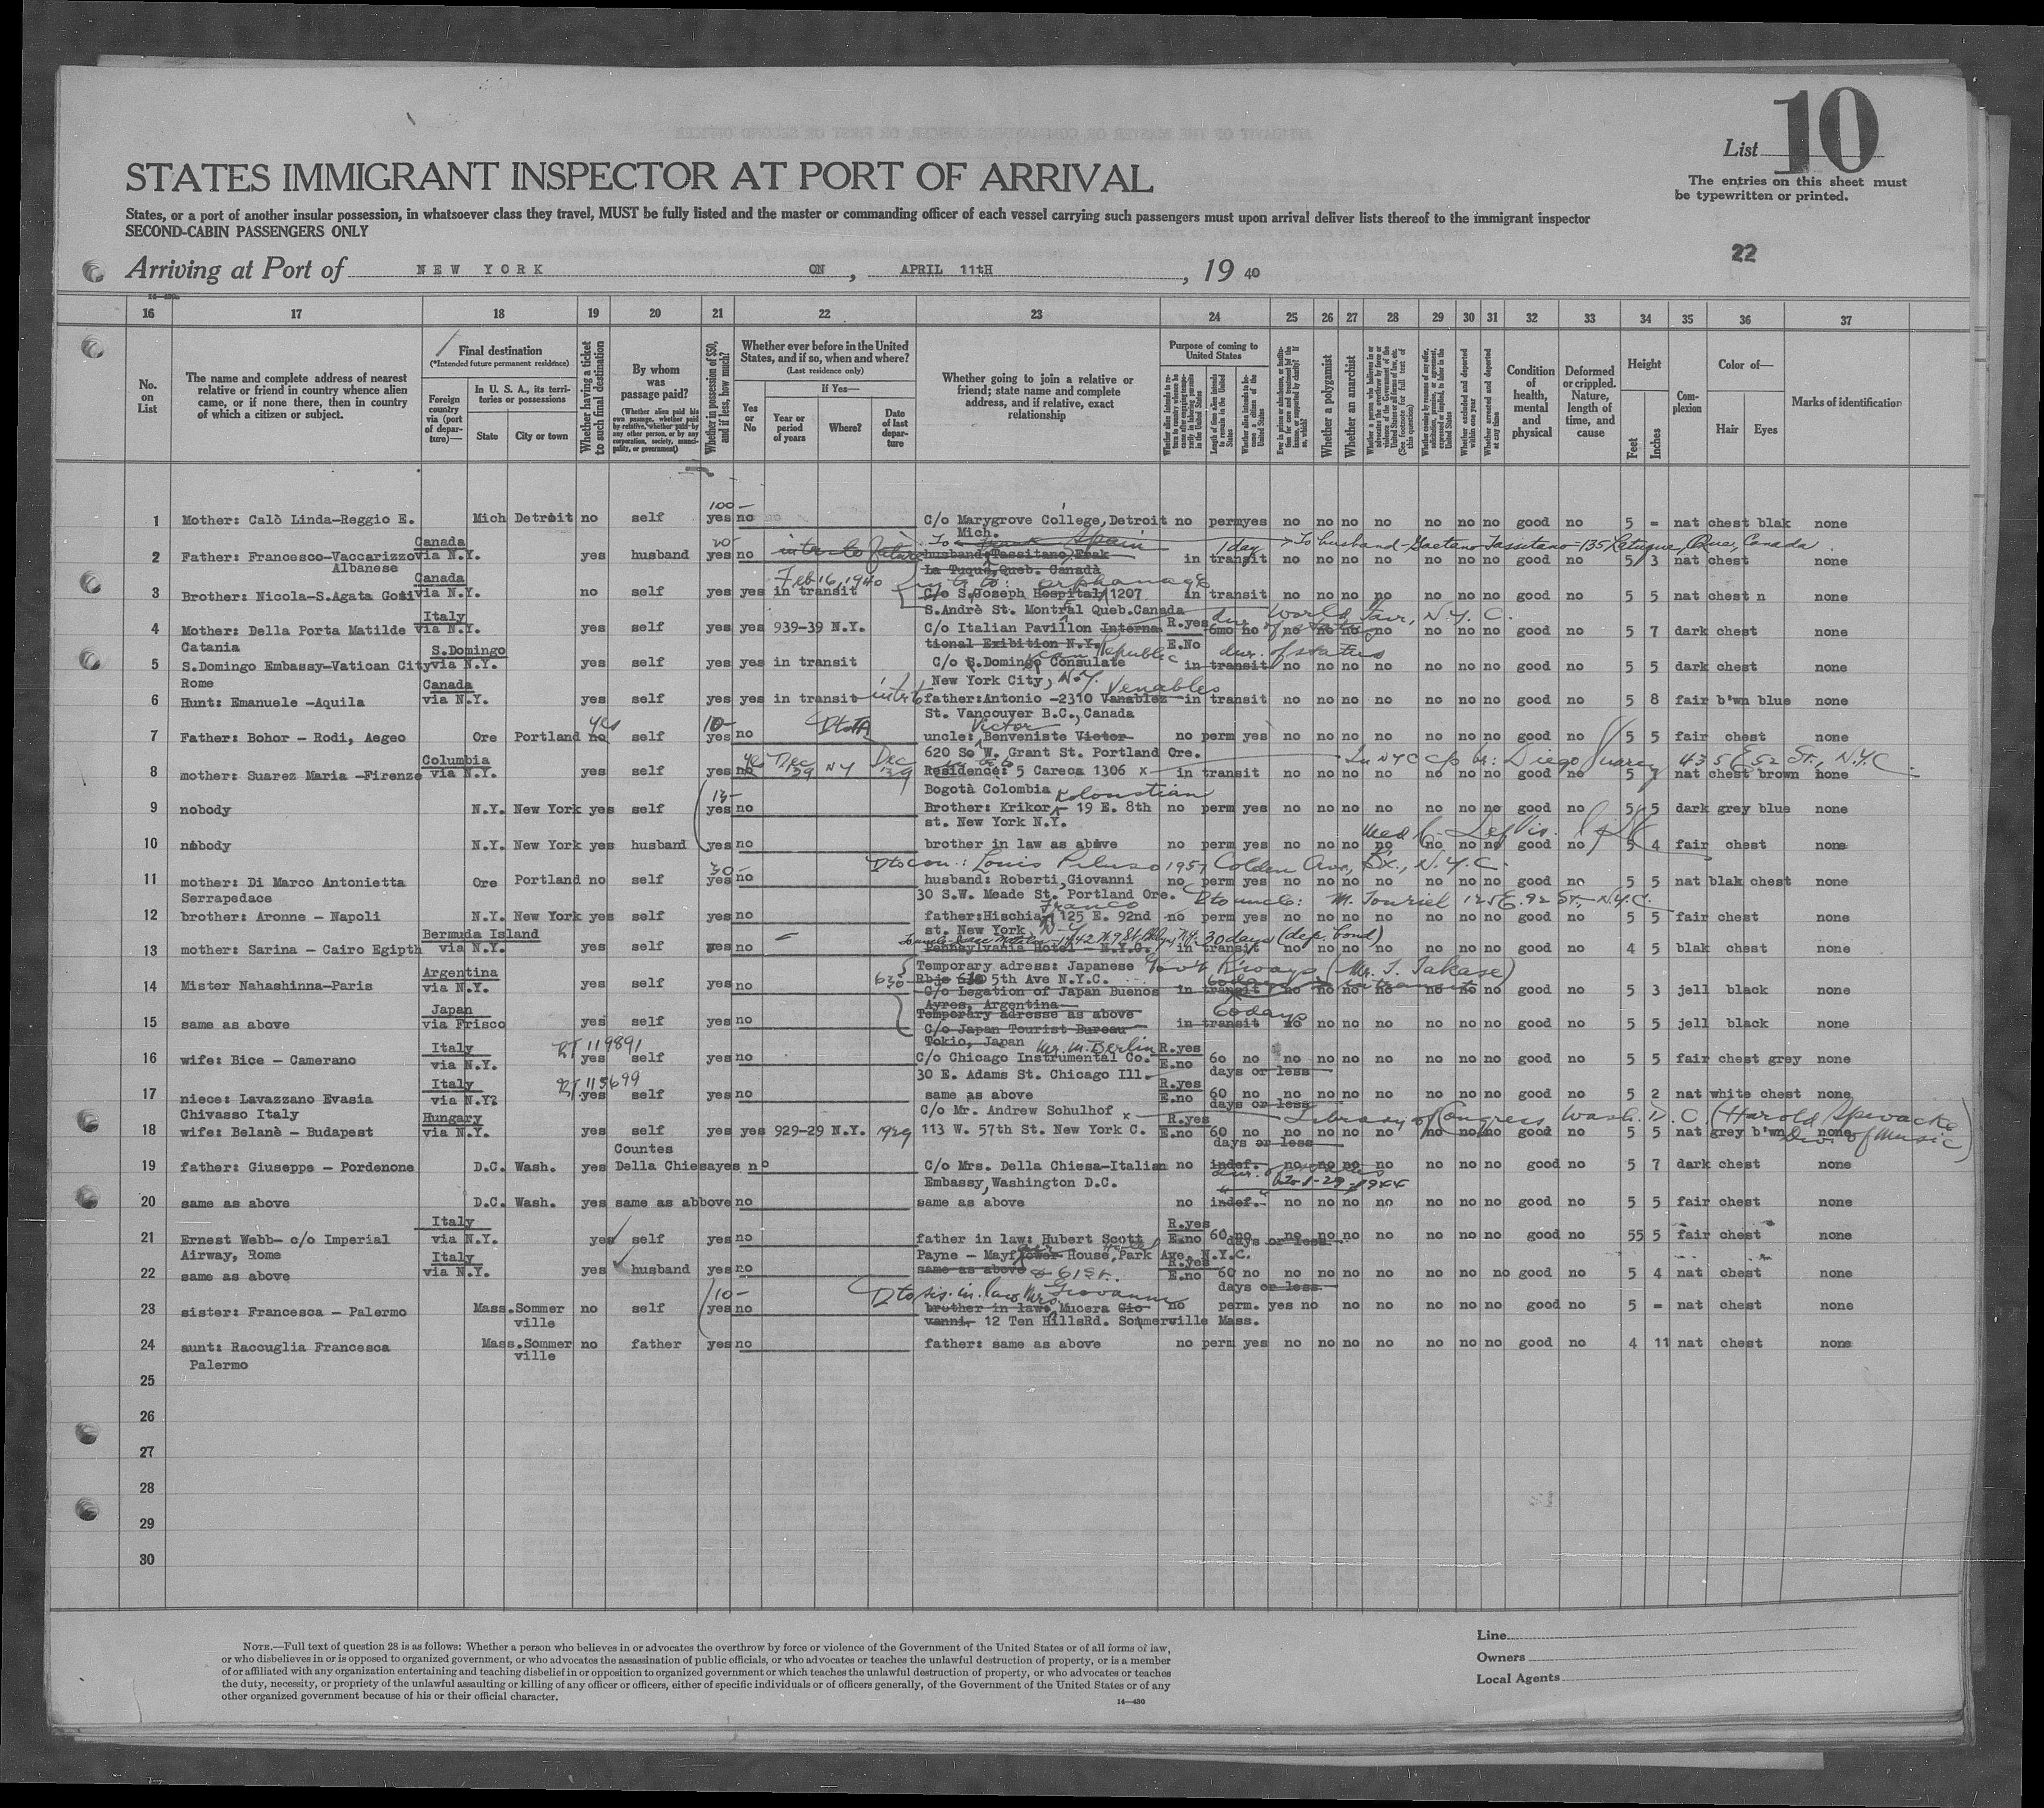 List 10
The entries on this sheet must
be typewritten or printed.
STATES IMMIGRANT INSPECTOR AT PORT OF ARRIVAL
States, or a port of another insular possession, in whatsoever class they travel, MUST be fully listed and the master or commanding officer of each vessel carrying such passengers must upon arrival deliver lists thereof to the immigrant inspector
SECOND-CABIN PASSENGERS ONLY
22
Arriving at Port of NEW YORK ON, APRIL 11tH, 19 40
16 17 18 19 20 21 22 23 24 25 26 27 28 29 30 31 32 33 34 35 36 37
No. on List
The name and complete address of nearest relative or friend in country whence alien came, or if none there, then in country of which a citizen or subject.
Final destination
(*Intended future permanent residence)
Foreign country via (port of departure)—
In U. S. A., its territories or possessions
State City or town
Whether having a ticket to such final destination
By whom was passage paid?
(Whether alien paid his own passage, whether paid by relative, whether paid by any other person, or by any corporation, society, municipality, or government)
Whether in possession of $50, and if less, how much?
Whether ever before in the United States, and if so, when and where?
(Last residence only)
Yes or No
If Yes—
Year or period of years Where? Date of last departure
Whether going to join a relative or friend; state name and complete address, and if relative, exact relationship
Purpose of coming to United States
Whether a polygamist
Whether an anarchist
Condition of health, mental and physical
Deformed or crippled. Nature, length of time, and cause
Height
Feet Inches
Complexion
Color of—
Hair Eyes
Marks of identification
100-
1 Mother: Calò Linda-Reggio E. Mich Detroit no self yes no C/o Marygrove College, Detroit no perm yes no no no no no no no good no 5 - nat chest blak none
Mich.
2 Father: Francesco-Vaccarizzo Canada via N.Y. yes husband yes no husband: Tassitano, in transit no no no no no no no good no 5 3 nat chest none
Albanese La Tuque, Queb. Canadà
1 day To husband - Gaetano Tassitano - 135 Latuque, Que, Canada
Feb 16, 1940 orphanage
3 Brother: Nicola-S.Agata Goti Canada via N.Y. no self yes yes in transit C/o S.Joseph Hospital, 1207 in transit no no no no no no no good no 5 5 nat chest n none
S.Andrè St. Montral Queb.Canada
World Fair, N.Y.C.
4 Mother: Della Porta Matilde Italy via N.Y. yes self yes yes 939-39 N.Y. C/o Italian Pavillon Interna R.yes E.No 6mo no no no no no no no no good no 5 7 dark chest none
Catania tional Exibition N.Y.
dur. of status
5 S.Domingo Embassy-Vatican City S.Domingo via N.Y. yes self yes yes in transit C/o S.Domingo Consulate in transit no no no no no no no good no 5 5 dark chest none
Rome New York City, N.Y.
Venables
6 Hunt: Emanuele -Aquila Canada via N.Y. yes self yes yes in transit father:Antonio -2310 Vanablez in transit no no no no no no no good no 5 8 fair b'wn blue none
St. Vancouyer B.C., Canada
yes 10- Victor
7 Father: Bohor - Rodi, Aegeo Ore Portland no self yes no uncle: Benveniste Victor no perm yes no no no no no no no good no 5 5 fair chest none
620 So W. Grant St. Portland Ore.
In NYC c/o br: Diego Suarez 435 E 52 St., N.Y.C.
8 mother: Suarez Maria -Firenze Columbia via N.Y. yes self yes no yes Dec 39 NY Dec 139 Residence: 5 Careca 1306 x in transit no no no no no no no good no 5 7 nat chest brown none
Bogotà Colombia
9 nobody N.Y. New York yes self yes no Brother: Krikor - 19 E. 8th no perm yes no no no no no no no good no 5 5 dark grey blue none
st. New York N.Y.
10 nobody N.Y. New York yes husband yes no brother in law as above no perm yes no no no no no no no good no 5 4 fair chest none
Louis Peluso 1957 Colden Ave, Bx., N.Y.C.
30-
11 mother: Di Marco Antonietta Ore Portland no self yes no husband: Roberti, Giovanni no perm yes no no no no no no no good no 5 5 nat blak chest none
Serrapedace 30 S.W. Meade St. Portland Ore.
D to uncle: M. Touriel 125 E. 92 St. - N.Y.C.
Franco
12 brother: Aronne - Napoli N.Y. New York yes self yes no father:Hischia, 125 E. 92nd no perm yes no no no no no no no good no 5 5 fair chest none
st. New York N.Y.
30 days (dep. bond)
13 mother: Sarina - Cairo Egipth Bermuda Island via N.Y. yes self yes no Pennsylvania Hotel - N.Y.C. in transit no no no no no no no good no 4 5 blak chest none
Temporary adress: Japanese Gov't R'ways (Mr. T. Takase)
14 Mister Nahashinna-Paris Argentina via N.Y. yes self yes no 630 5th Ave N.Y.C. in transit no no no no no no no good no 5 3 jell black none
C/o Legation of Japan Buenos
Ayres, Argentina
60 days
15 same as above Japan via Frisco yes self yes no Temporary adresse as above in transit no no no no no no no good no 5 5 jell black none
C/o Japan Tourist Bureau
Tokio, Japan
RT 119891 Mr. M. Berlin
16 wife: Bice - Camerano Italy via N.Y. yes self yes no C/o Chicago Instrumental Co. R.yes E.no 60 no no no no no no no no good no 5 5 fair chest grey none
30 E. Adams St. Chicago Ill. days or less
RT 115699
17 niece: Lavazzano Evasia Italy via N.Y? yes self yes no same as above R.yes E.no 60 no no no no no no no no good no 5 2 nat white chest none
Chivasso Italy days or less
Library of Congress Wash. D.C. (Harold Spivacke Div. of Music)
C/o Mr. Andrew Schulhof x
18 wife: Belanè - Budapest Hungary via N.Y. yes self yes yes 929-29 N.Y. 1929 113 W. 57th St. New York C. R.yes E.no 60 no no no no no no no no good no 5 5 nat grey b'wn none
days or less
Countes
19 father: Giuseppe - Pordenone D.C. Wash. yes Della Chiesa yes no C/o Mrs. Della Chiesa-Italian no indef. no no no no no no no good no 5 7 dark chest none
Embassy, Washington D.C.
20 same as above D.C. Wash. yes same as abbove no same as above no indef. no no no no no no no good no 5 5 fair chest none
21 Ernest Webb- c/o Imperial Italy via N.Y. yes self yes no father in law: Hubert Scott R.yes E.no 60 no no no no no no no no good no 55 5 fair chest none
Airway, Rome Payne - Mayflower House, Park Ave. N.Y.C. days or less
22 same as above Italy via N.Y. yes husband yes no same as above & 61 St. R.yes E.no 60 no no no no no no no no good no 5 4 nat chest none
days or less
10- D to sis. in law Mrs Giovanni
23 sister: Francesca - Palermo Mass. Sommer no self yes no brother in law: Mucera Gio no perm. yes no no no no no no no good no 5 - nat chest none
ville vanni, 12 Ten HillsRd. Sommerville Mass.
24 aunt: Raccuglia Francesca Mass. Sommer no father yes no father: same as above no perm yes no no no no no no no good no 4 11 nat chest none
Palermo ville
25
26
27
28
29
30
NOTE.—Full text of question 28 is as follows: Whether a person who believes in or advocates the overthrow by force or violence of the Government of the United States or of all forms of law,
or who disbelieves in or is opposed to organized government, or who advocates the assassination of public officials, or who advocates or teaches the unlawful destruction of property, or is a member
of or affiliated with any organization entertaining and teaching disbelief in or opposition to organized government or which teaches the unlawful destruction of property, or who advocates or teaches
the duty, necessity, or propriety of the unlawful assaulting or killing of any officer or officers, either of specific individuals or of officers generally, of the Government of the United States or of any
other organized government because of his or their official character.
14—430
Line
Owners
Local Agents